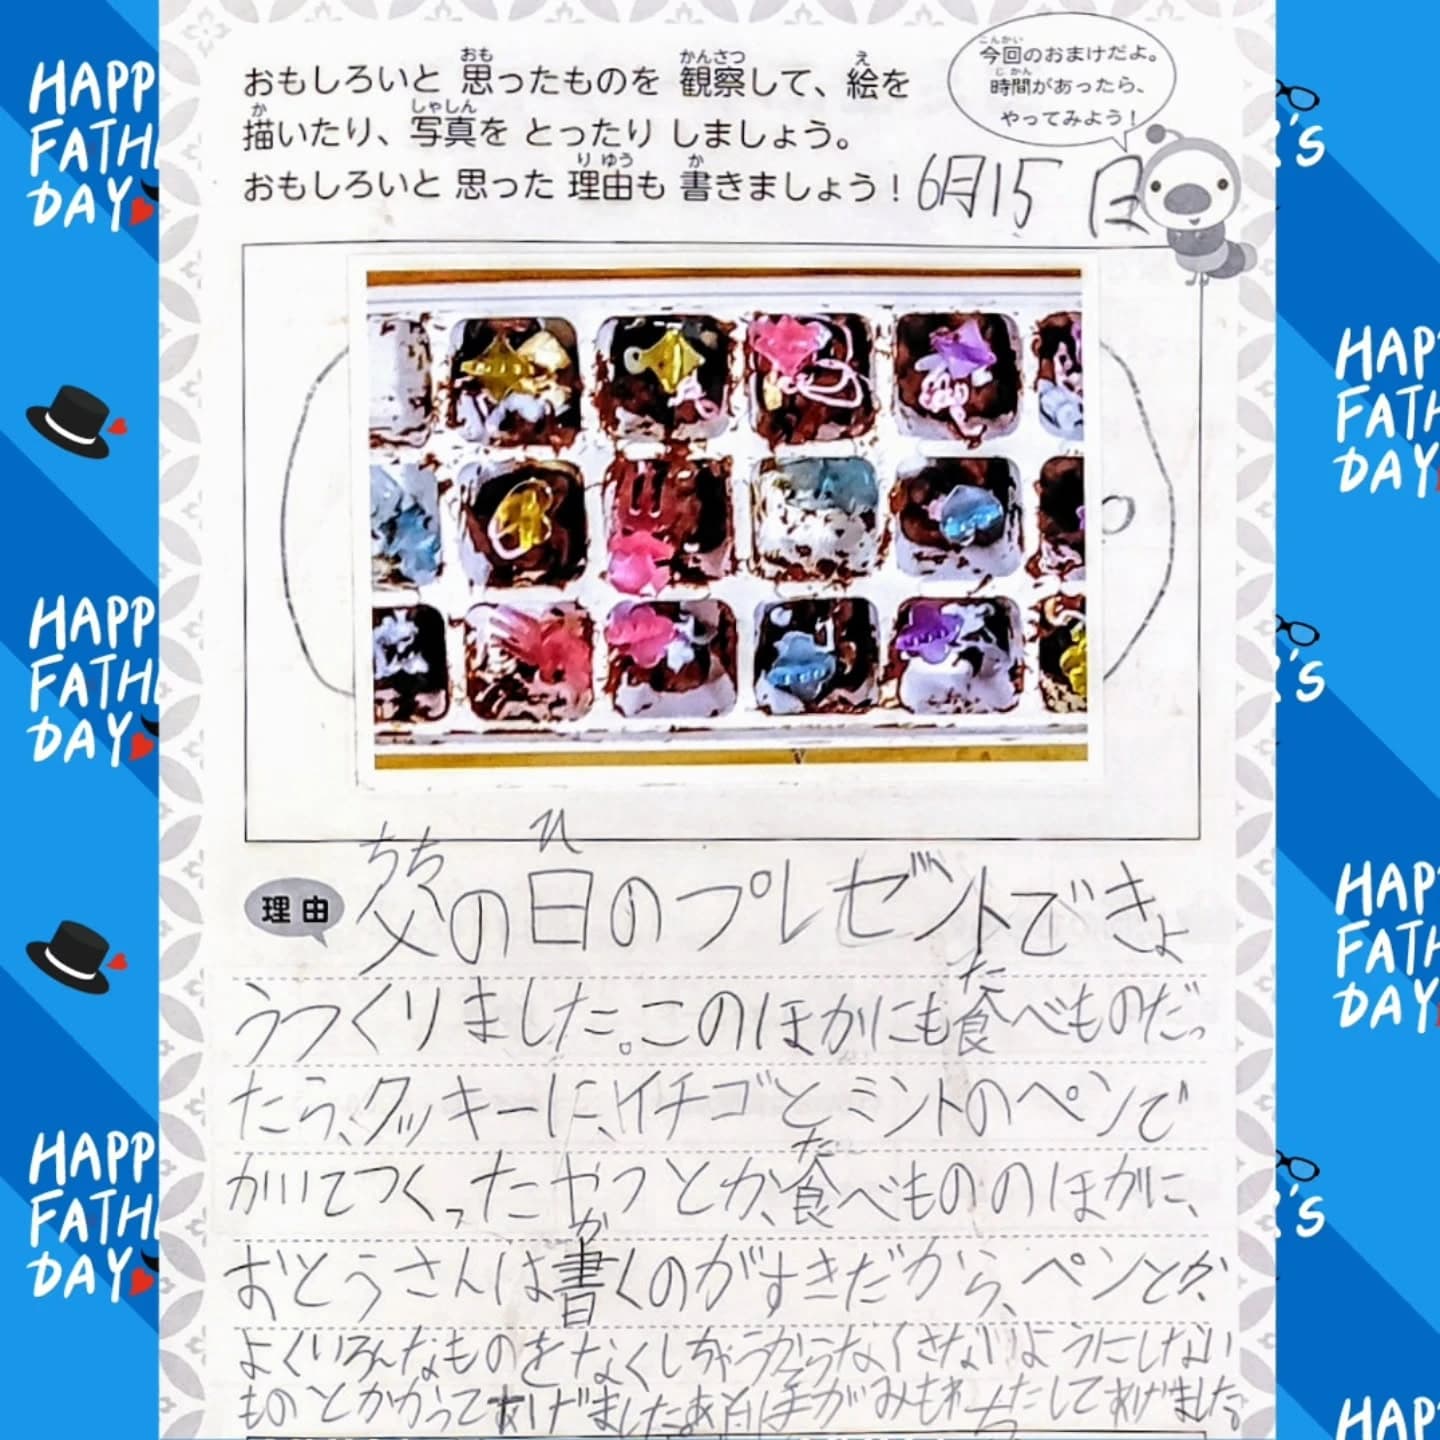 おもしろいと 思ったものを 観察して、絵を
描いたり、写真を とったり しましょう。
おもしろいと 思った 理由も 書きましょう!
今回のおまけだよ。
時間があったら、
やってみよう!
6月15日
理由
父の日のプレゼントできょ
うつくりました。このほかにも食べものだっ
たら、クッキーに、イチゴとミントのペンで
かいてつくったやつとか、食べもののほかに、
おとうさんは書くのがすきだから、ペンとか、
よくいろんなものをなくしちゃうからなくさないようにしない
ものとかかってあげました。
わたしてあげました。
HAPP
FATH
DAY
HAPP
FATH
DAY
HAPP
FATH
DAY
'S
HAP
FATH
DAY
'S
HAP
FATH
DAY
'S
HAP